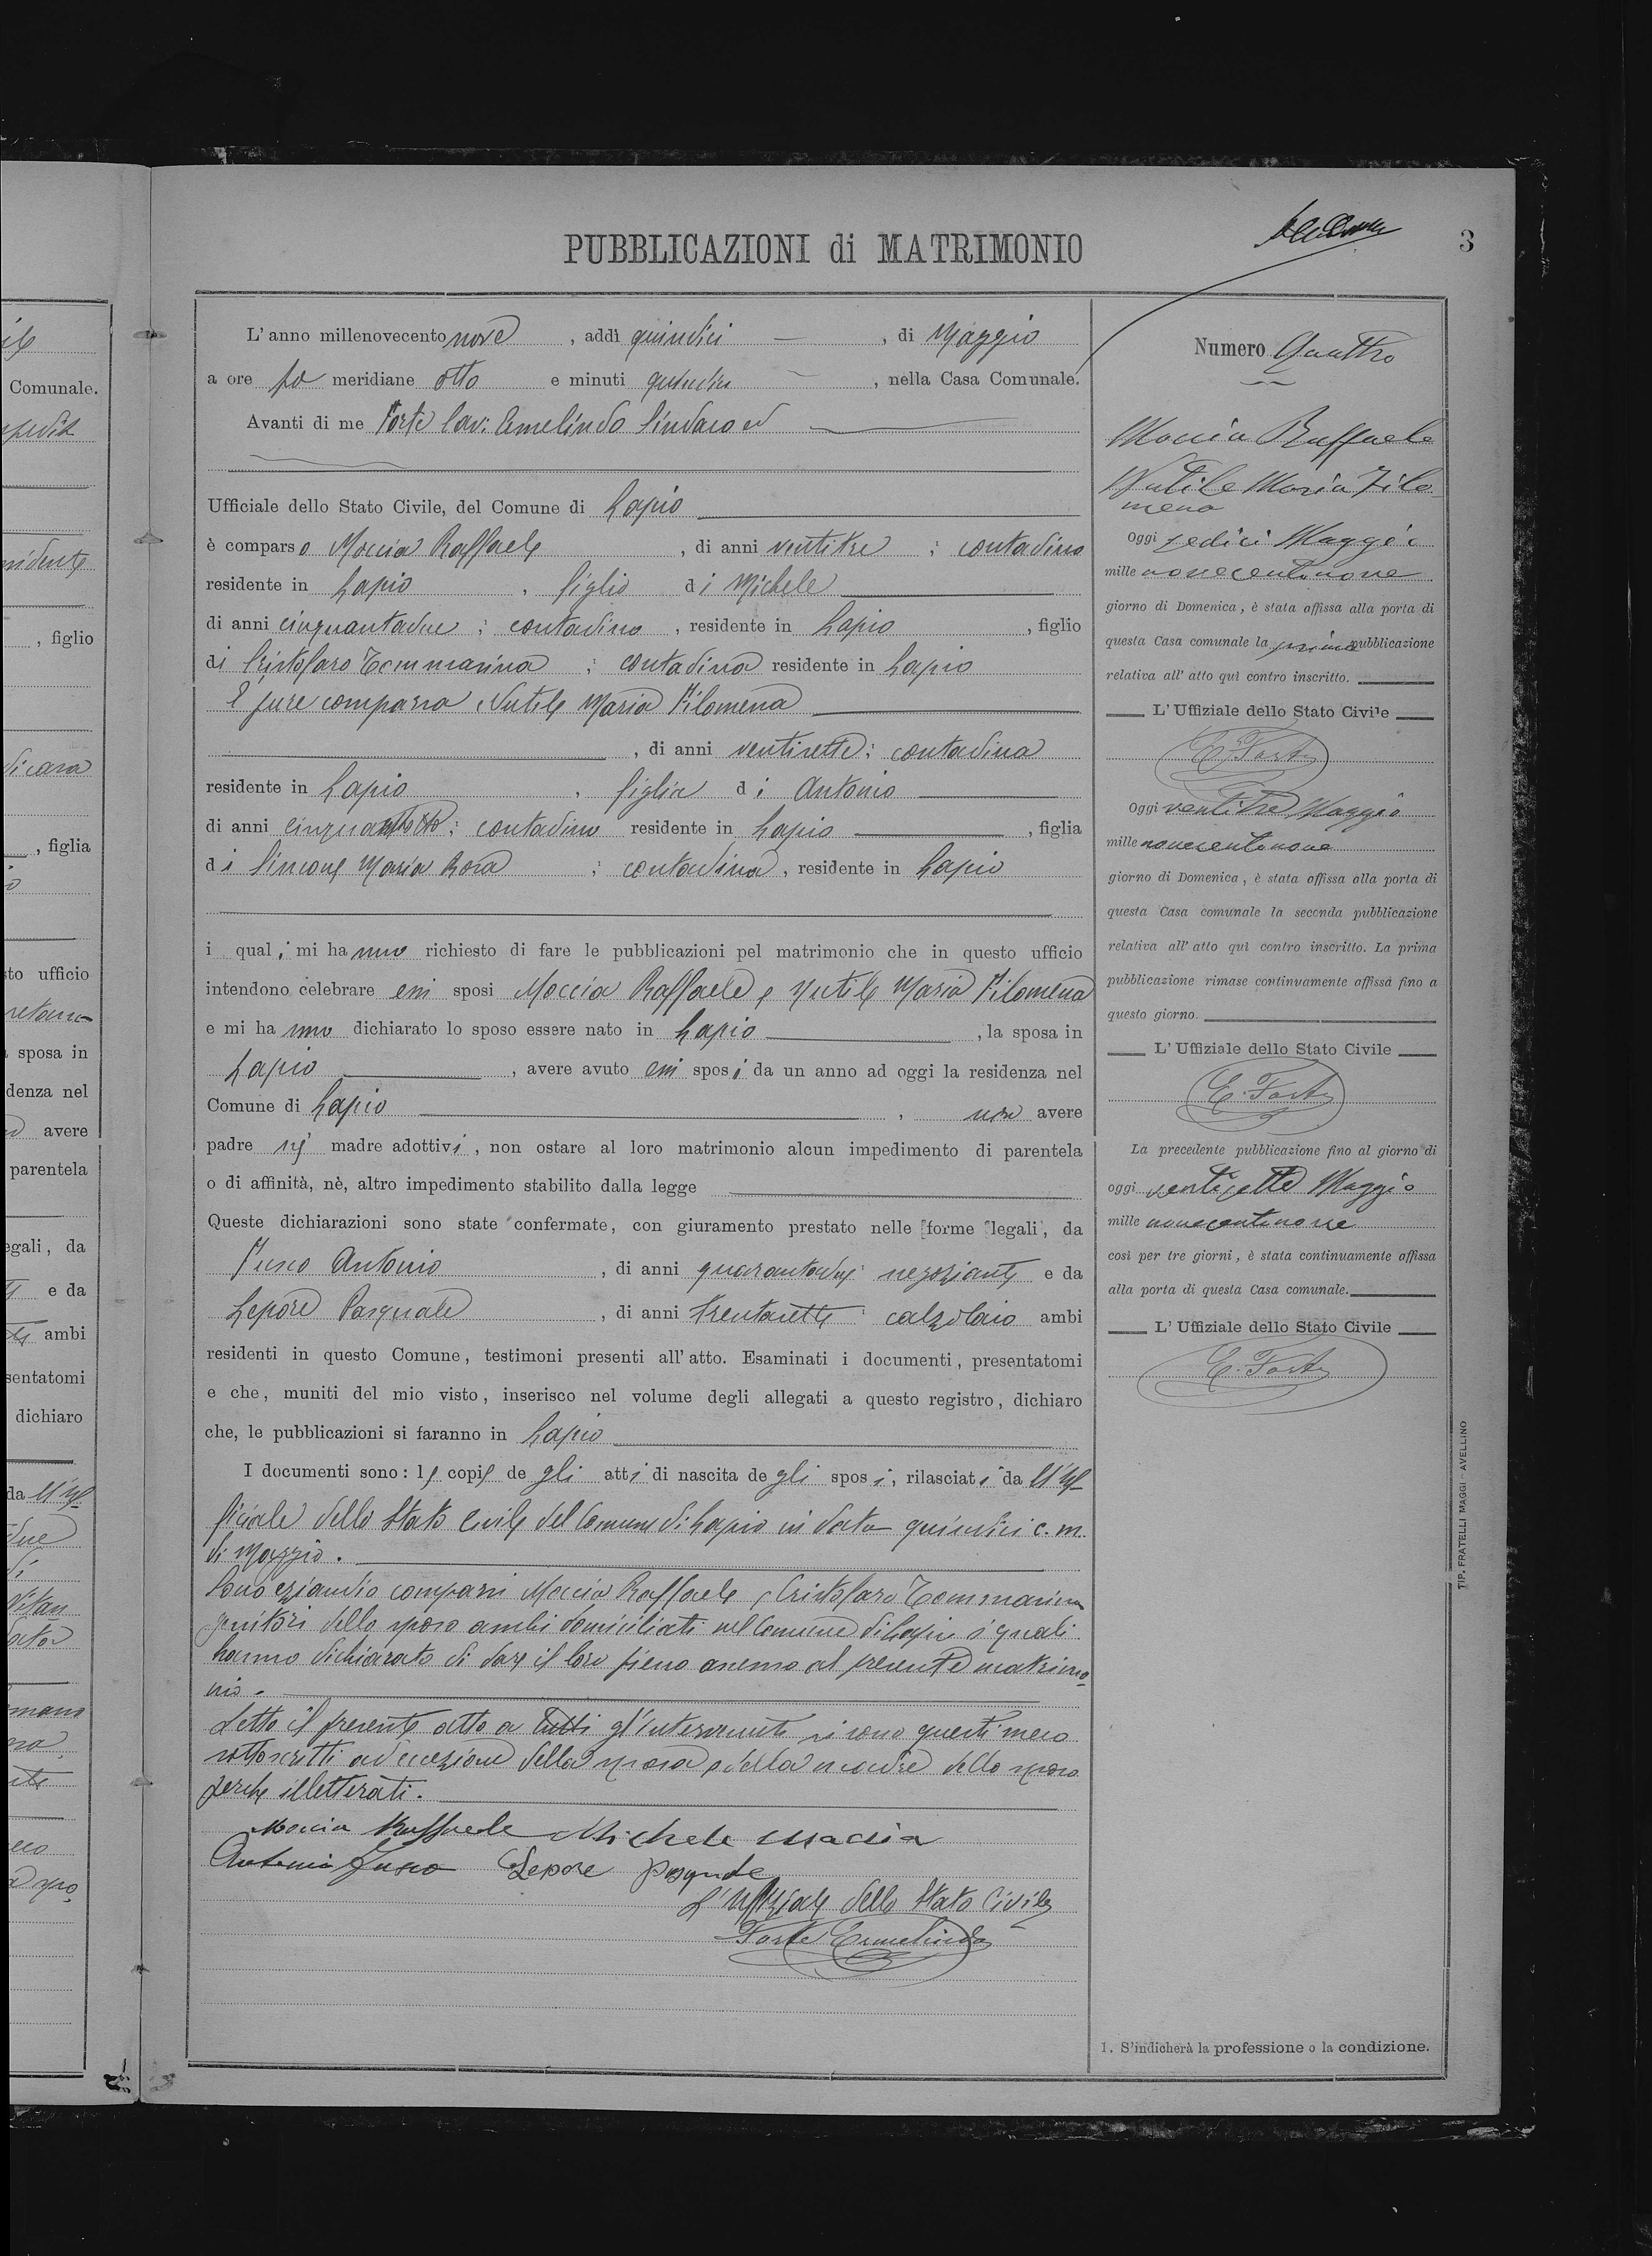 PUBBLICAZIONI di MATRIMONIO
3
L'anno millenovecento nove, addì quindici, di Maggio
a ore po meridiane otto e minuti quindici, nella Casa Comunale.
Avanti di me Forte Cav: Ermelindo Sindaco ed
Ufficiale dello Stato Civile, del Comune di Lapio
è comparso Moccia Raffaele, di anni ventitre; contadino
residente in Lapio, figlio di Michele
di anni cinquantadue; contadino, residente in Lapio, figlio
di Cristofaro Tommasina; contadina residente in Lapio
E pure comparsa Nutile Maria Filomena
, di anni ventisette; contadina
residente in Lapio, figlia di Antonio
di anni cinquantotto; contadino residente in Lapio, figlia
di Simeone Maria Rosa; contadina, residente in Lapio
i quali mi hanno richiesto di fare le pubblicazioni pel matrimonio che in questo ufficio
intendono celebrare essi sposi Moccia Raffaele e Nutile Maria Filomena
e mi hanno dichiarato lo sposo essere nato in Lapio, la sposa in
Lapio, avere avuto essi sposi da un anno ad oggi la residenza nel
Comune di Lapio, non avere
padre nè madre adottivi, non ostare al loro matrimonio alcun impedimento di parentela
o di affinità, nè, altro impedimento stabilito dalla legge
Queste dichiarazioni sono state confermate, con giuramento prestato nelle forme legali, da
Fusco Antonio, di anni quarantadue negoziante e da
Lepore Pasquale, di anni trentasette: calzolaio ambi
residenti in questo Comune, testimoni presenti all'atto. Esaminati i documenti, presentatomi
e che, muniti del mio visto, inserisco nel volume degli allegati a questo registro, dichiaro
che, le pubblicazioni si faranno in Lapio
I documenti sono: le copie degli atti di nascita degli sposi, rilasciati dall'Uf
ficiale dello Stato Civile del Comune di Lapio in data quindici c. m.
di Maggio.
Sono eziandio comparsi Moccia Raffaele e Cristofaro Tommasina
genitori dello sposo ambi domiciliati nel Comune di Lapio i quali
hanno dichiarato di dare il loro pieno assenso al presente matrimo
nio.
Letto il presente atto a tutti gl'intervenuti si sono questi meco
sottoscritti ad eccezione della sposa e della madre dello sposo
perché illetterati.
Moccia Raffaele Michele Moccia
Antonio Fusco Lepore Pasquale
L'Uffiziale dello Stato Civile
Forte Ermelindo
Numero Quattro
Moccia Raffaele
Nutile Maria Filo
mena
Oggi sedici Maggio
mille novecentonove
giorno di Domenica, è stata affissa alla porta di
questa Casa comunale la prima pubblicazione
relativa all'atto quì contro inscritto.
L'Uffiziale dello Stato Civile
E. Forte
Oggi ventitre Maggio
mille novecentonove
giorno di Domenica, è stata affissa alla porta di
questa Casa comunale la seconda pubblicazione
relativa all'atto quì contro inscritto. La prima
pubblicazione rimase continuamente affissa fino a
questo giorno.
L'Uffiziale dello Stato Civile
E. Forte
La precedente pubblicazione fino al giorno di
oggi ventisette Maggio
mille novecentonove
così per tre giorni, è stata continuamente affissa
alla porta di questa Casa comunale.
L'Uffiziale dello Stato Civile
E. Forte
1. S'indicherà la professione o la condizione.
TIP. FRATELLI MAGGI - AVELLINO
Comunale.
, figlio
, figlia
to ufficio
sposa in
denza nel
avere
parentela
egali, da
e da
ambi
sentatomi
dichiaro